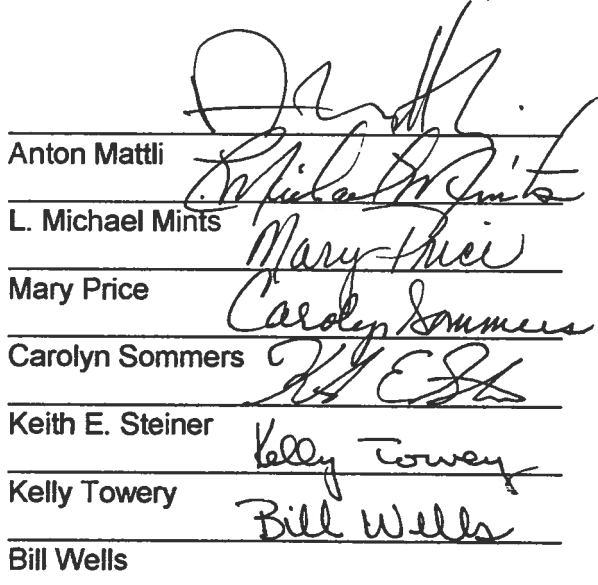 Anton Mattli
L. Michael Mints
L. Michael Mints
Mary Price
Mary Price
Carolyn Sommers
Carolyn Sommers
K E. St
Keith E. Steiner
Kelly Towery
Kelly Towery
Bill Wells
Bill Wells